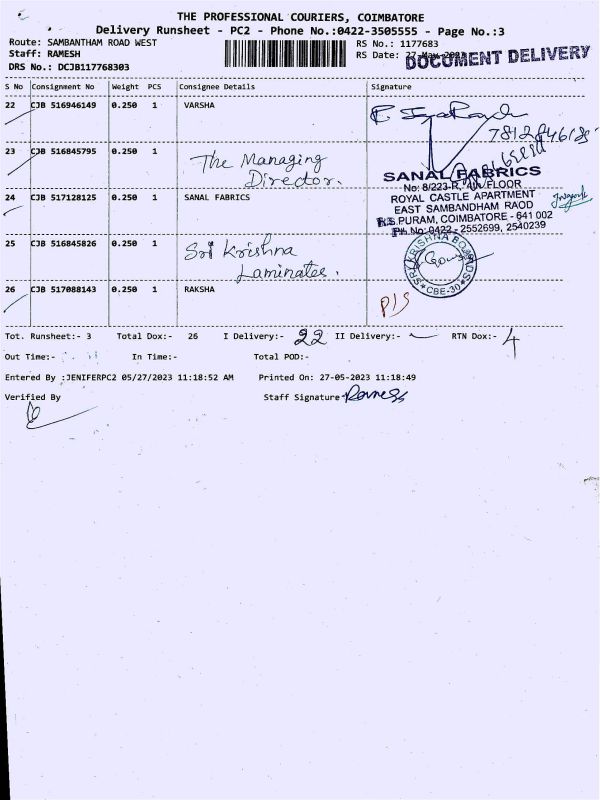 THE PROFESSIONAL COURIERS, COIMBATORE
Delivery Runsheet - PC2 - Phone No.:0422-3505555 - Page No.:3
Route: SAMBANTHAM ROAD WEST
RS No.: 1177683
Staff: RAMESH
RS Date: 27-May-2023
DOCUMENT DELIVERY
DRS No.: DCJB117768303
S No Consignment No Weight PCS Consignee Details Signature
22 CJB 516946149 0.250 1 VARSHA
23 CJB 516845795 0.250 1 The Managing
Director.
24 CJB 517128125 0.250 1 SANAL FABRICS
SANAL FABRICS
No: 8/223-R, 4th FLOOR
ROYAL CASTLE APARTMENT
EAST SAMBANDHAM RAOD
R.S. PURAM, COIMBATORE - 641 002
Ph. No: 0422 - 2552699, 2540239
25 CJB 516845826 0.250 1 Sri Krishna
Laminates.
SRI KRISHNA BOARDS
CBE-30
26 CJB 517088143 0.250 1 RAKSHA
P/S
Tot. Runsheet:- 3 Total Dox:- 26 I Delivery:- 22 II Delivery:- RTN Dox:- 4
Out Time:- In Time:- Total POD:-
Entered By :JENIFERPC2 05/27/2023 11:18:52 AM Printed On: 27-05-2023 11:18:49
Verified By Staff Signature Ramesh